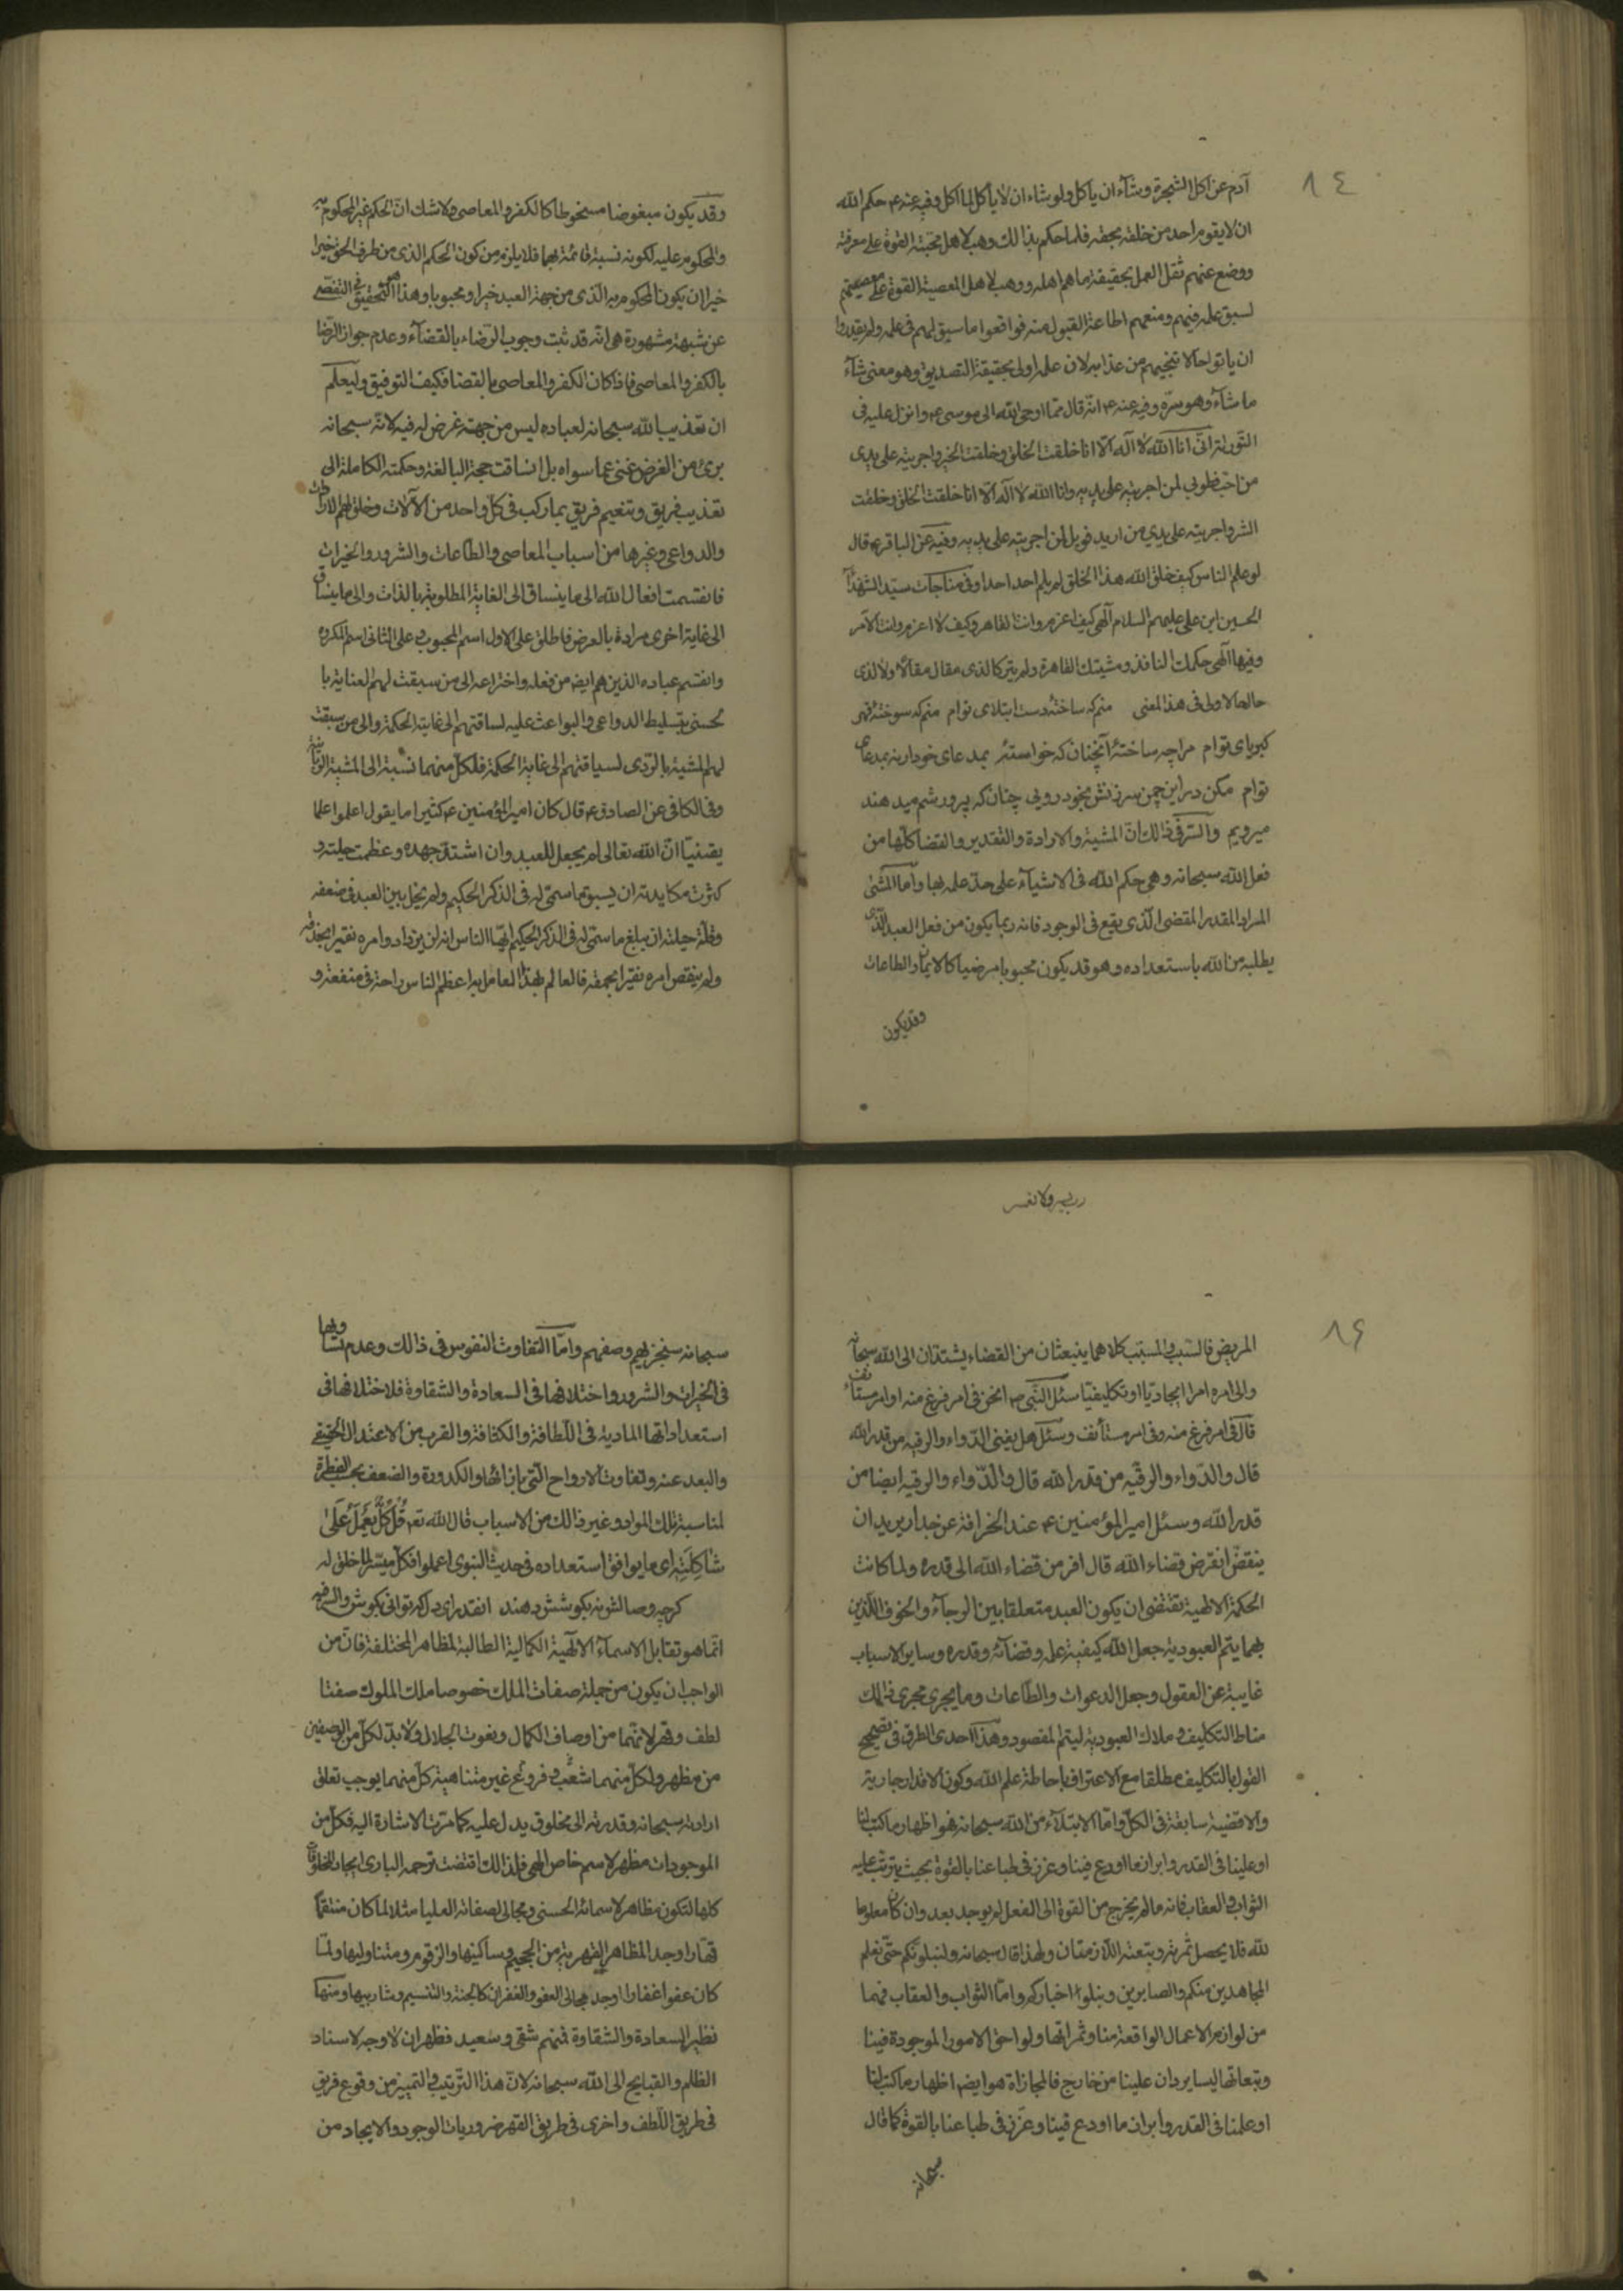 ١٤
آدم عن اكل الشجرة وشآء ان ياكل ولو شاء ان لا ياكل لما اكل وفيه عنه ع حكم الله
ان لا يقوم احد من خلقه بحقه فلما حكم بذالك وهب لاهل محبته القوة على معرفته
ووضع عنهم ثقل العمل بحقيقة ما هم اهله ووهب لاهل المعصية القوة على معصيتهم
لسبق علمه فيهم ومنعهم اطاعة القبول منه فواقعوا ما سبق لهم فى علمه ولم يقدروا
ان ياتوا حالا تنجيهم من عذابه لان علمه اولى بحقيقة التصديق وهو معنى شآء
ما شآء وهو سرّه وفيه عنه ع انّه قال ممّا اوحى الله الى موسى ع وانزل عليه فى
التّورية انّى انا الله لا آله الّا انا خلقت الخلق وخلقت الخير واجريته على يدى
من احبّ فطوبى لمن اجريته على يديه وانا الله لا آله الّا انا خلقت الخلق وخلقت
الشر واجريته على يدي من اريد فويل لمن اجريته على يديه وفيه عن الباقر ع قال
لو علم الناس كيف خلق الله هذا الخلق لم يلم احد احدا وفى مناجات سيّد الشهدآ
الحسين ابن على عليهم السلام آلهى كيف اعزم وانت القاهر وكيف لا اعزم وانت الآمر
وفيها آلهى حكمك النافذ ومشيتك القاهرة ولم يتركا لذى مقال مقالا ولا لذى
حال حالا ولى فى هذا المعنى منم كه ساختهٔ دست ابتلاى توام منم كه سوختهٔ قهر
كبرياى توام مرا چه ساختهٔ آنچنان كه خواستهٔ بمدعاى خود ار نه بمدعاى
توام مكن در اين چمن سرزنش بخود رويى چنان كه پرورشم ميدهند
ميرويم والسّرّ فى ذالك انّ المشية والارادة والتقدير والقضا كلّها من
فعل الله سبحانه وهى حكم الله فى الاشيآء على حدّ علمه بها وامّا المشئ
المراد المقدر المقضى الّذى يقع فى الوجود فانه ربما يكون من فعل العبد الّذى
يطلبه من الله باستعداده وهو قد يكون محبوبا مرضيا كالايمان والطاعات
وقد يكون
وقد يكون مبغوضا مسخوطا كالكفر والمعاصى ولا شك انّ الحكم غير المحكوم به
والمحكوم عليه لكونه نسبة قائمة بهما فلا يلزم من كون الحكم الذى من طرف الحق خيرا
خيرا ان يكون المحكوم به الّذى من جهة العبد خيرا ومحبوبا وهذا هو التّحقيق فى التفصّى
عن شبهة مشهورة هى انّه قد ثبت وجوب الرّضاء بالقضآء وعدم جواز الرّضا
بالكفر والمعاصى فاذا كان الكفر والمعاصى بالقضا فكيف التوفيق وليعلم
ان تعذيب الله سبحانه لعباده ليس من جهة غرض له فيه لانّه سبحانه
برئ من الغرض غنى عما سواه بل انساقت حجة البالغة وحكمته الكاملة الى
تعذيب فريق وتنعيم فريق بما ركب فى كلّ واحد من الآلات وخلق لهم الارادات
والدواعى وغيرها من اسباب المعاصى والطاعات والشرور والخيرات
فانقسمت افعال الله الى ما ينساق الى الغاية المطلوبة بالذات والى ما ينساق
الى غاية اخرى مرادة بالعرض فاطلق على الاول اسم المحبوب وعلى الثانى اسم المكروه
وانقسم عباده الذين هم ايضا من فعله واختراعه الى من سبقت لهم العناية با
لحسنى بتسليط الدواعى والبواعث عليه لسياقتهم الى غاية الحكمة والى من سبقت
لهم المشية بالرّدى لسياقتهم الى غاية الحكمة فلكلّ منهما نسبة الى المشية الرّبانية
وفى الكافى عن الصادق ع قال كان امير المؤمنين ع كثيرا ما يقول اعلموا علما
يقينيا انّ الله تعالى لم يجعل للعبد وان اشتدّ جهده وعظمت حيلته و
كثرت مكايدته ان يسبق ما سمّى له فى الذكر الحكيم ولم يخل بين العبد فى ضعفه
وقلّة حيلته ان يبلغ ما سمّى له فى الذكر الحكيم ايّها الناس انه لن يزداد امره نقيرا بحذقه
ولم ينقص امره نقيرا بحمقه فالعالم بهذا العامل به اعظم الناس راحة فى منفعته و
١٤
المريض فالسّبب والمسبّب كلاهما ينبعثان من القضاء يستندان الى الله سبحانه
والى امره امرا ايجاديّا او تكليفيّا سئل النّبى ص انحن فى امر فرغ منه او امر مستأنف
قال فى امر فرغ منه وفى امر مستأنف وسئل هل يغنى الدّواء والرقيه من قدر الله
قال والدّواء والرقيّه من قدر الله قال والدّواء والرقيه ايضا من
قدر الله وسئل امير المؤمنين ع عند انحرافه عن جدار يريد ان
ينقض انفر من قضاء الله قال افر من قضاء الله الى قدره ولما كانت
الحكمة الالهية تقتضى ان يكون العبد متعلقا بين الرجآء والخوف اللّذين
بهما يتم العبودية جعل الله كيفية علمه وقضآئه وقدره وساير الاسباب
غايبة عن العقول وجعل الدعوات والطّاعات وما يجرى مجرى ذالك
مناط التكليف وملاك العبودية ليتم المقصود وهذا احدى الطرق فى تصحيح
القول بالتكليف مطلقا مع الاعتراف باحاطة علم الله وكون الاقدار جارية
والاقضية سابقة فى الكلّ وامّا الابتلآء من الله سبحانه فهو اظهار ما كتب لنا
او علينا فى القدر وابراز ما اودع فينا وغرز فى طباعنا بالقوة بحيث يترتب عليه
الثواب والعقاب فانه ما لم يخرج من القوة الى الفعل لم يوجد بعد وان كان معلوما
لله فلا يحصل ثمرته وتبعته اللّازمتان ولهذا قال سبحانه ولنبلونّكم حتّى نعلم
المجاهدين منكم والصابرين ونبلوا اخباركم وامّا الثواب والعقاب فهما
من لوازم الاعمال الواقعة منا وثمراتها ولواحق الامور الموجودة فينا
وتبعاتها ليسا يردان علينا من خارج فالمجازاة هو ايضا اظهار ما كتب لنا
او علينا فى القدر وابراز ما اودع فينا وغرز فى طباعنا بالقوة كما قال
سبحانه
سبحانه سيجزيهم وصفهم وامّا التفاوت النفوس فى ذالك وعدم تساويها
فى الخيرات والشرور واختلافها فى السعادة والشقاوة فلاختلافها فى
استعداداتها المادية فى اللّطافة والكثافة والقرب من الاعتدال الحقيقى
والبعد عنه وتفاوت الارواح الّتى بازائها والكدورة والضعف بحسب الفطرة
لمناسبة تلك المواد وغير ذالك من الاسباب قال الله تعم قُل كُلٌّ يَعْمَلُ عَلَى
شَاكِلَتِهِ اى ما يوافق استعداده وفى حديث النبوى اعملوا فكلّ ميسّر لما خلق له
گرچه وصالش نه بكوشش دهند انقدر اى دل كه توانى بكوش والسّرّ فيه
انّما هو تقابل الاسمآء الآلهية الكمالية الطالبة لمظاهر المختلفة فانّ من
الواجب ان يكون من جملة صفات الملك خصوصا ملك الملوك صفتا
لطف وقهر لانّهما من اوصاف الكمال ونعوت الجلال ولا بدّ لكلّ من الوصفين
من مظهر ولكلّ منهما شعب وفروع غير متناهية كلّ منهما يوجب تعلق
ارادته سبحانه وقدرته الى مخلوق يدل عليه كما مرّت الاشارة اليه فكلّ من
الموجودات مظهر لاسم خاص الهى فلذالك اقتضت رحمه البارى ايجاد المخلوقات
كلها لتكون مظاهر لاسمائه الحسنى ومجالى لصفاته العليا مثلا لما كان منتقما
قهّارا اوجد المظاهر القهرية من الجحيم وساكنيها والزقوم ومتناوليها ولمّا
كان عفوا غفارا اوجد مجالى العفو والغفران كالجنة والتنسيم وشاربيها ومنها
نظهر السعادة والشقاوة فمنهم شقى وسعيد فظهر ان لا وجه لاسناد
الظلم والقبايح الى الله سبحانه لانّ هذا التّرتيب والتمييز من وقوع فريق
فى طريق اللّطف واخرى فى طريق القهر ضروريات الوجود والايجاد من